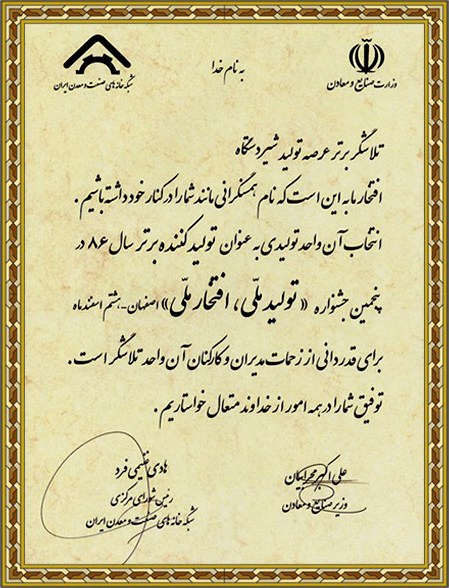 به نام خدا
وزارت صنایع و معادن
شبکه خانه های صنعت و معدن ایران
تلاشگر برتر عرصه تولید شیر دستگاه
افتخار ما به این است که نام همسنگرانی مانند شما را در کنار خود داشته باشیم .
انتخاب آن واحد تولیدی به عنوان تولید کننده برتر سال ۸۶ در
پنجمین جشنواره «تولید ملّی، افتخار ملّی» اصفهان - هشتم اسفند ماه
برای قدردانی از زحمات مدیران و کارکنان آن واحد تلاشگر است .
توفیق شما را در همه امور از خداوند متعال خواستاریم .
علی اکبر محرابیان
وزیر صنایع و معادن
هادی غنیمی فرد
رئیس شورای مرکزی
شبکه خانه های صنعت و معدن ایران